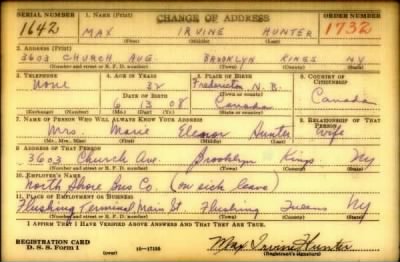 SERIAL NUMBER 1. NAME (Print) CHANGE OF ADDRESS ORDER NUMBER
1642 MAX IRVINE HUNTER 1732
(First) (Middle) (Last)
2. ADDRESS (Print)
3603 CHURCH AVE. BROOKLYN KINGS NY
(Number and street or R. F. D. number) (Town) (County) (State)
3. TELEPHONE 4. AGE IN YEARS 5. PLACE OF BIRTH 6. COUNTRY OF CITIZENSHIP
None 32 Fredericton N. B.
DATE OF BIRTH
6 13 08 Canada Canadian
(Exchange) (Number) (Mo.) (Day) (Yr.) (State or country)
7. NAME OF PERSON WHO WILL ALWAYS KNOW YOUR ADDRESS 8. RELATIONSHIP OF THAT PERSON
Mrs. Marie Eleanor Hunter Wife
(Mr., Mrs., Miss) (First) (Middle) (Last)
9. ADDRESS OF THAT PERSON
3603 Church Ave. Brooklyn Kings Ny
(Number and street or R. F. D. number) (Town) (County) (State)
10. EMPLOYER'S NAME
North Shore Bus Co (on sick leave)
11. PLACE OF EMPLOYMENT OR BUSINESS
Flushing Terminal Main St Flushing Queens Ny
(Number and street or R. F. D. number) (Town) (County) (State)
I AFFIRM THAT I HAVE VERIFIED ABOVE ANSWERS AND THAT THEY ARE TRUE.
REGISTRATION CARD
D. S. S. Form 1 (over) 16-17105 Max Irvine Hunter
(Registrant's signature)